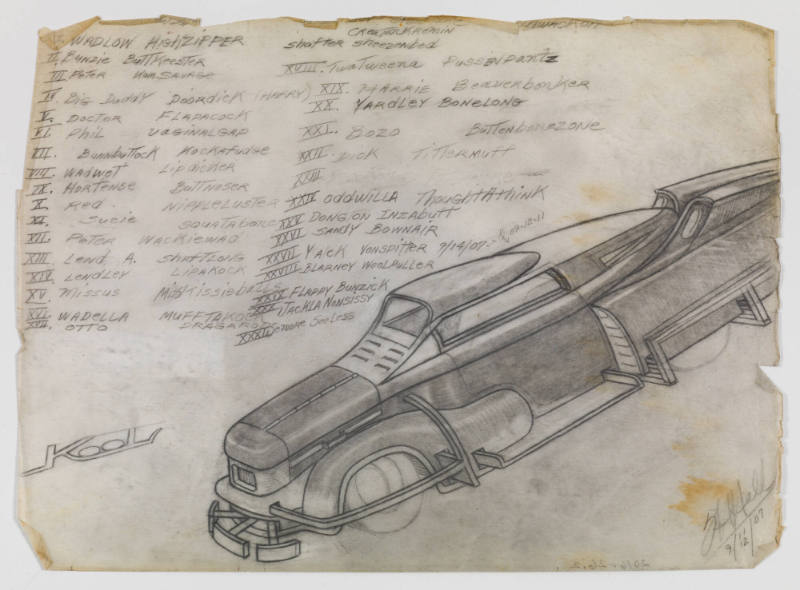 WADLOW HIGHZIPPER
II. Eunzie Buttkeester
III. Peter VonSavage
IV. Big Daddy Doordick (HARRY)
V. Doctor Flapacock
VI. Phil Vaginalgap
VII. Bunnbuttock Kockafudge
VIII. Wadwet Lipdicker
IX. Hortense Buttnoser
X. Red. Nippleluster
XI. Sucie Squatabone
XII. Peter Wackiewad
XIII. Lend A. Shaftlong
XIV. Lendley Lipakock
XV. Missus Kissieballs
XVI. Wadella Mufftakock
XVII. Otto
shafter
XVIII. TwaTweena Pussenpantz
XIX. Harrie Beaverbonker
XX. Yardley Bonelong
XXI. Bozo Buttenbonezone
XXII. Dick Tittermutt
XXIII.
XXIV Oddwilla ThoughtAthink
XXV Dong on Inzabutt
XXVI Sandy Bownair
XXVII Yack Vonspitter 9/14/07
XXVIII Blarney Woolpuller
XXIX Flappy Bunzick
XXX Tackla Nonsissy
XXXI Senore Seeless
Kool
9/12/07